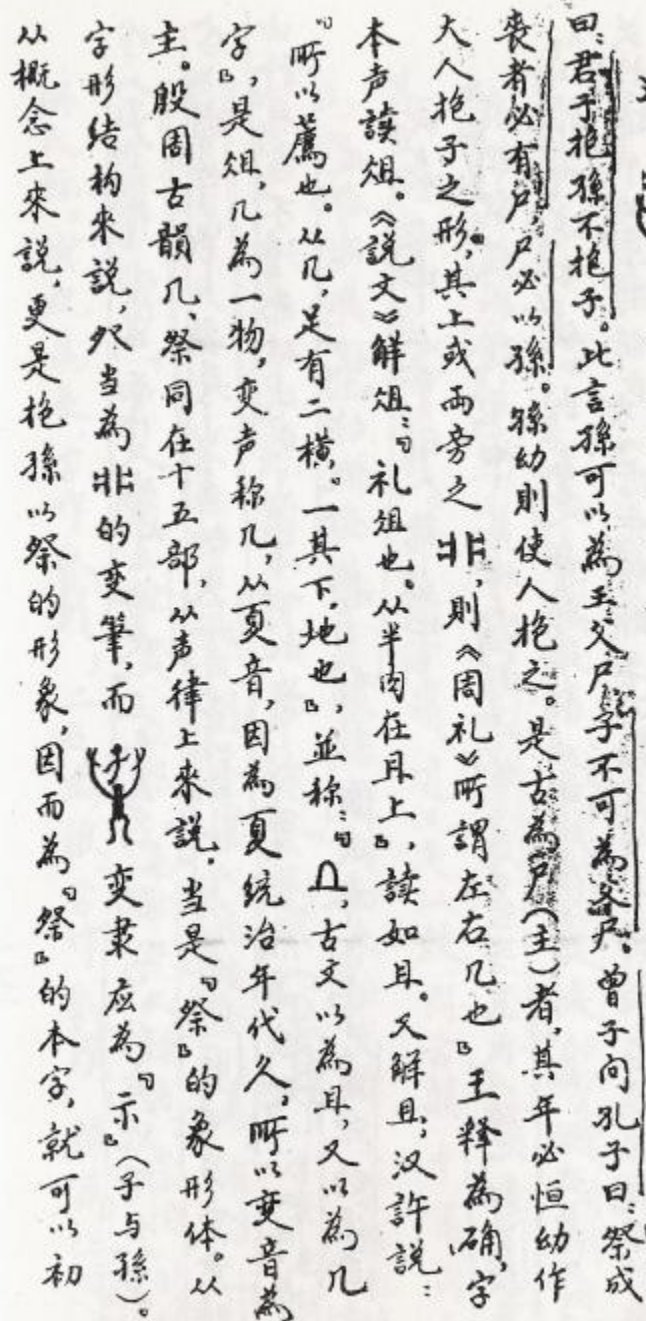 曰：君子抱孫不抱子。此言孫可以為王父尸，子不可為父尸。曾子问孔子曰：祭成
丧者必有尸，尸必以孫。孫幼則使人抱之。是古為尸（主）者，其年必恒幼，作
大人抱子之形，其上或两旁之非，則《周礼》所謂左右几也』王释為确，字
本声读俎。《説文》解俎：『礼俎也。从半肉在且上』，读如且。又解且，汉許説：
『所以薦也。从几，足有二横。一其下，地也』，並称：『，古文以為且，又以為几
字』，是俎，几為一物，变声称几，从夏音，因為夏统治年代久，所以变音為
主。殷周古韻几、祭同在十五部，从声律上來説，当是『祭』的象形体。从
字形结构來説，癶当為非的变筆，而变隶应為『示』（子与孫）。
从概念上來説，更是抱孫以祭的形象，因而為『祭』的本字，就可以初